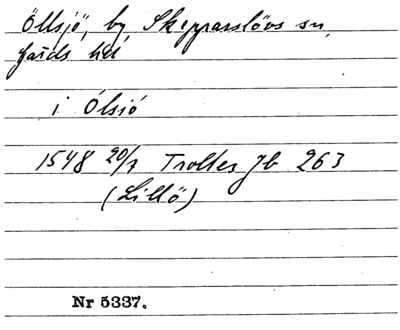 Öllsjö, by, Skepparslövs sn,
Gärds hd
i Ólsió
1548 20/7 Trolles Jb 263
(Lillö)
Nr 5337.